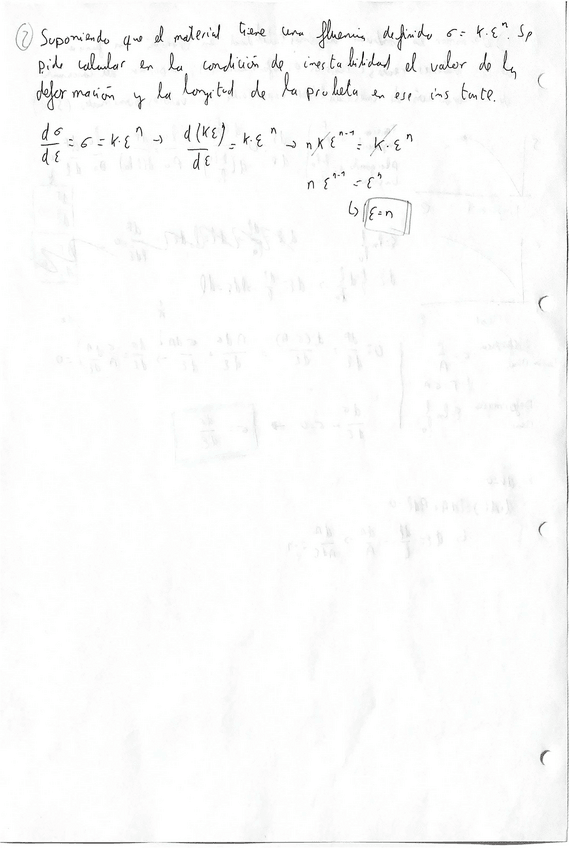 ② Suponiendo que el material tiene una fluencia definido σ = K·ε^n. Se
pide calcular en la condición de inestabilidad el valor de la
deformación y la longitud de la probeta en ese instante.
dσ/dε = σ = K·ε^n → d(Kε)/dε = K·ε^n → n K ε^(n-1) = K·ε^n
n ε^(n-1) = ε^n
↳ ε=n